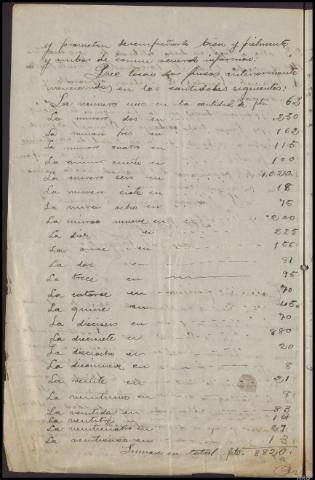 y prometen desempeñarlo bien y fielmente
y ambos de comun acuerdo informan:
Que las fincas anteriormente
en las cantidades siguientes:
La numero uno en la cantidad de pts. 62
La numero dos en 230
La numero tres en 162
La numero cuatro en 115
La numero cinco en 100
La numero seis en
La numero siete en 18
La numero ocho en 75
La numero nueve en 200
La diez en 225
La once en
La doce en 81
La trece en 95
La catorce en 70
La quince en
La dieciseis en 70
La diecisiete en 880
La dieciocho en 20
La diecinueve en 8
La veinte en 21
La veintiuno en 8
La veintidos en 83
La veintitres en 14
La veinticuatro en 29
La veinticinco en 13
Suma en total pts.